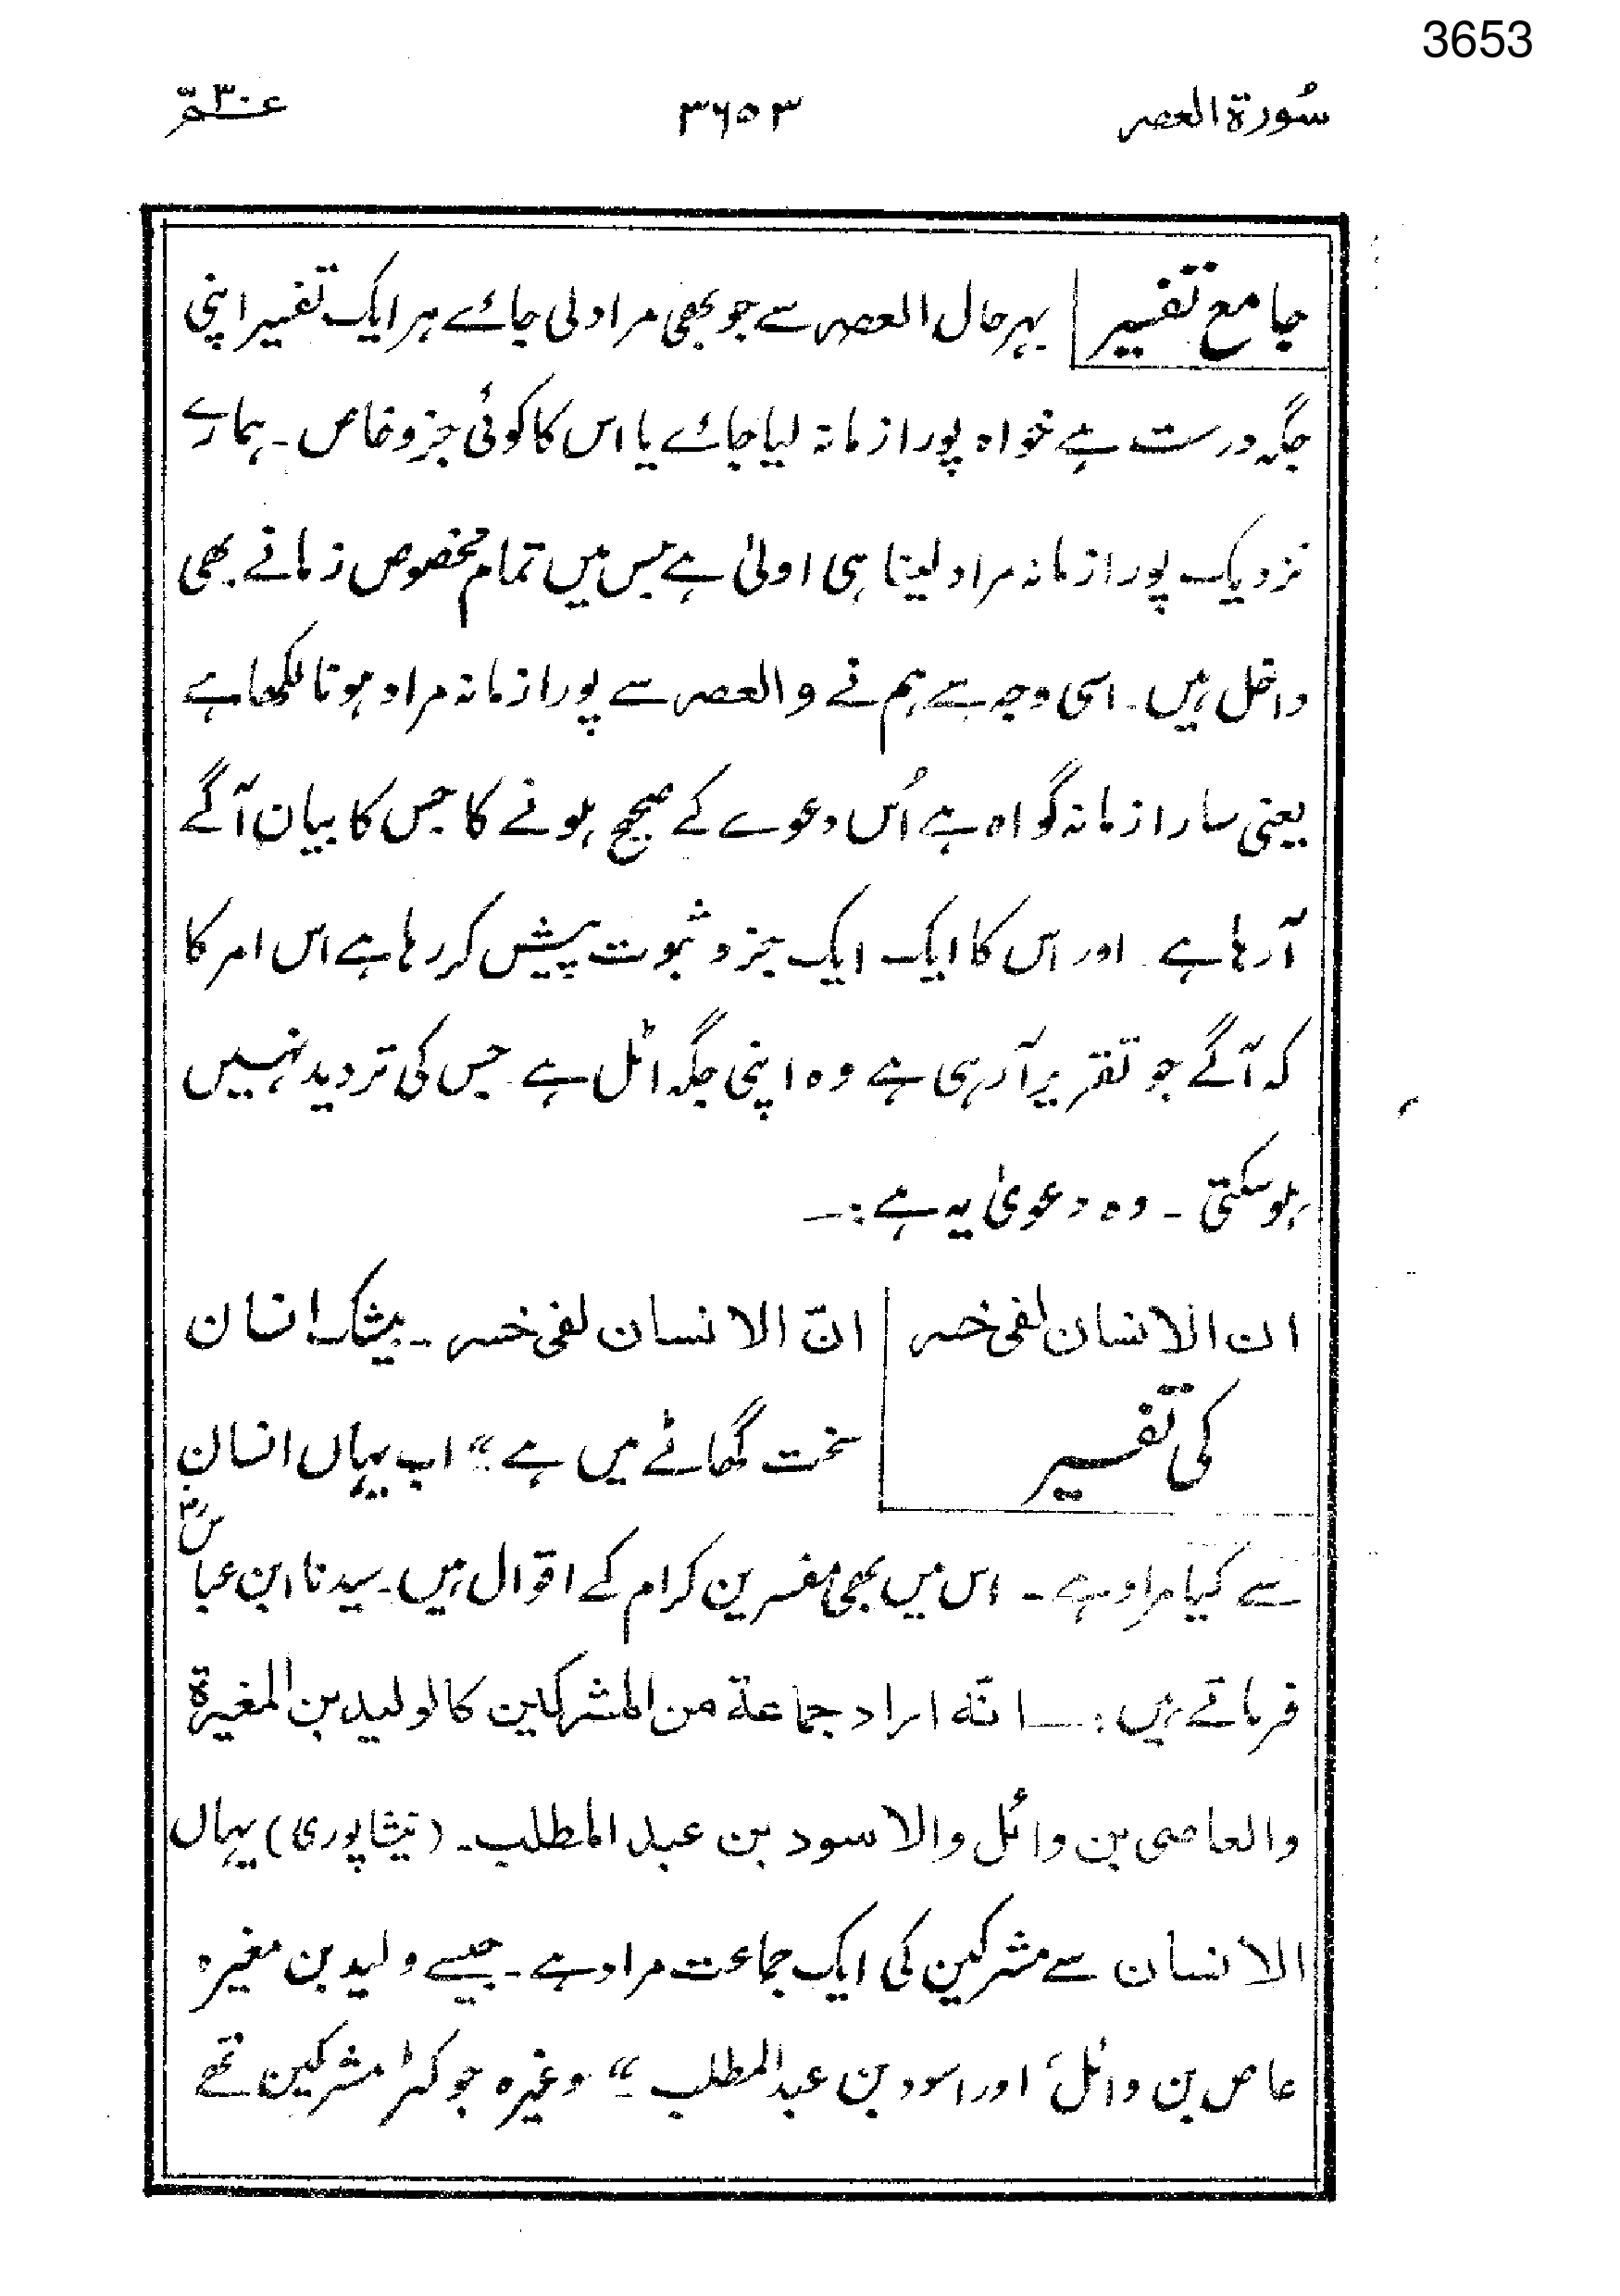 3653
سُورة العصر ۳۶۵۳ عـمّ ۳۰
جامع تفسیر بہرحال العصر سے جو بھی مراد لی جائے ہر ایک تفسیر اپنی
جگہ درست ہے خواہ پورا زمانہ لیا جائے یا اس کا کوئی جزو خاص ۔ ہمارے
نزدیک پورا زمانہ مراد لینا ہی اولیٰ ہے جس میں تمام مخصوص زمانے بھی
داخل ہیں ۔ اسی وجہ سے ہم نے والعصر سے پورا زمانہ مراد ہونا لکھا ہے
یعنی سارا زمانہ گواہ ہے اُس دعوے کے صحیح ہونے کا جس کا بیان آگے
آرہا ہے ۔ اور اس کا ایک ایک جزو ثبوت پیش کر رہا ہے اس امر کا
کہ آگے جو تقریر آرہی ہے وہ اپنی جگہ اٹل ہے جس کی تردید نہیں
ہوسکتی ۔ وہ دعویٰ یہ ہے :۔
ان الانسان لفی خسر انّ الانسان لفی خسر ۔ بیشک انسان
کی تفسیر سخت گھاٹے میں ہے ‘‘ اب یہاں انسان
سے کیا مراد ہے ۔ اس میں بھی مفسرین کرام کے اقوال ہیں ۔ سیدنا ابن عباسؓ
فرماتے ہیں :۔ انّه اراد جماعة من المشرکین کالولید بن المغیرة
والعاصی بن وائل والاسود بن عبد المطلب ۔ (نیشاپوری) یہاں
الانسان سے مشرکین کی ایک جماعت مراد ہے ۔ جیسے ولید بن مغیرہ
عاص بن وائل اور اسود بن عبدالمطلب ‘‘ وغیرہ جو کٹر مشرکین تھے